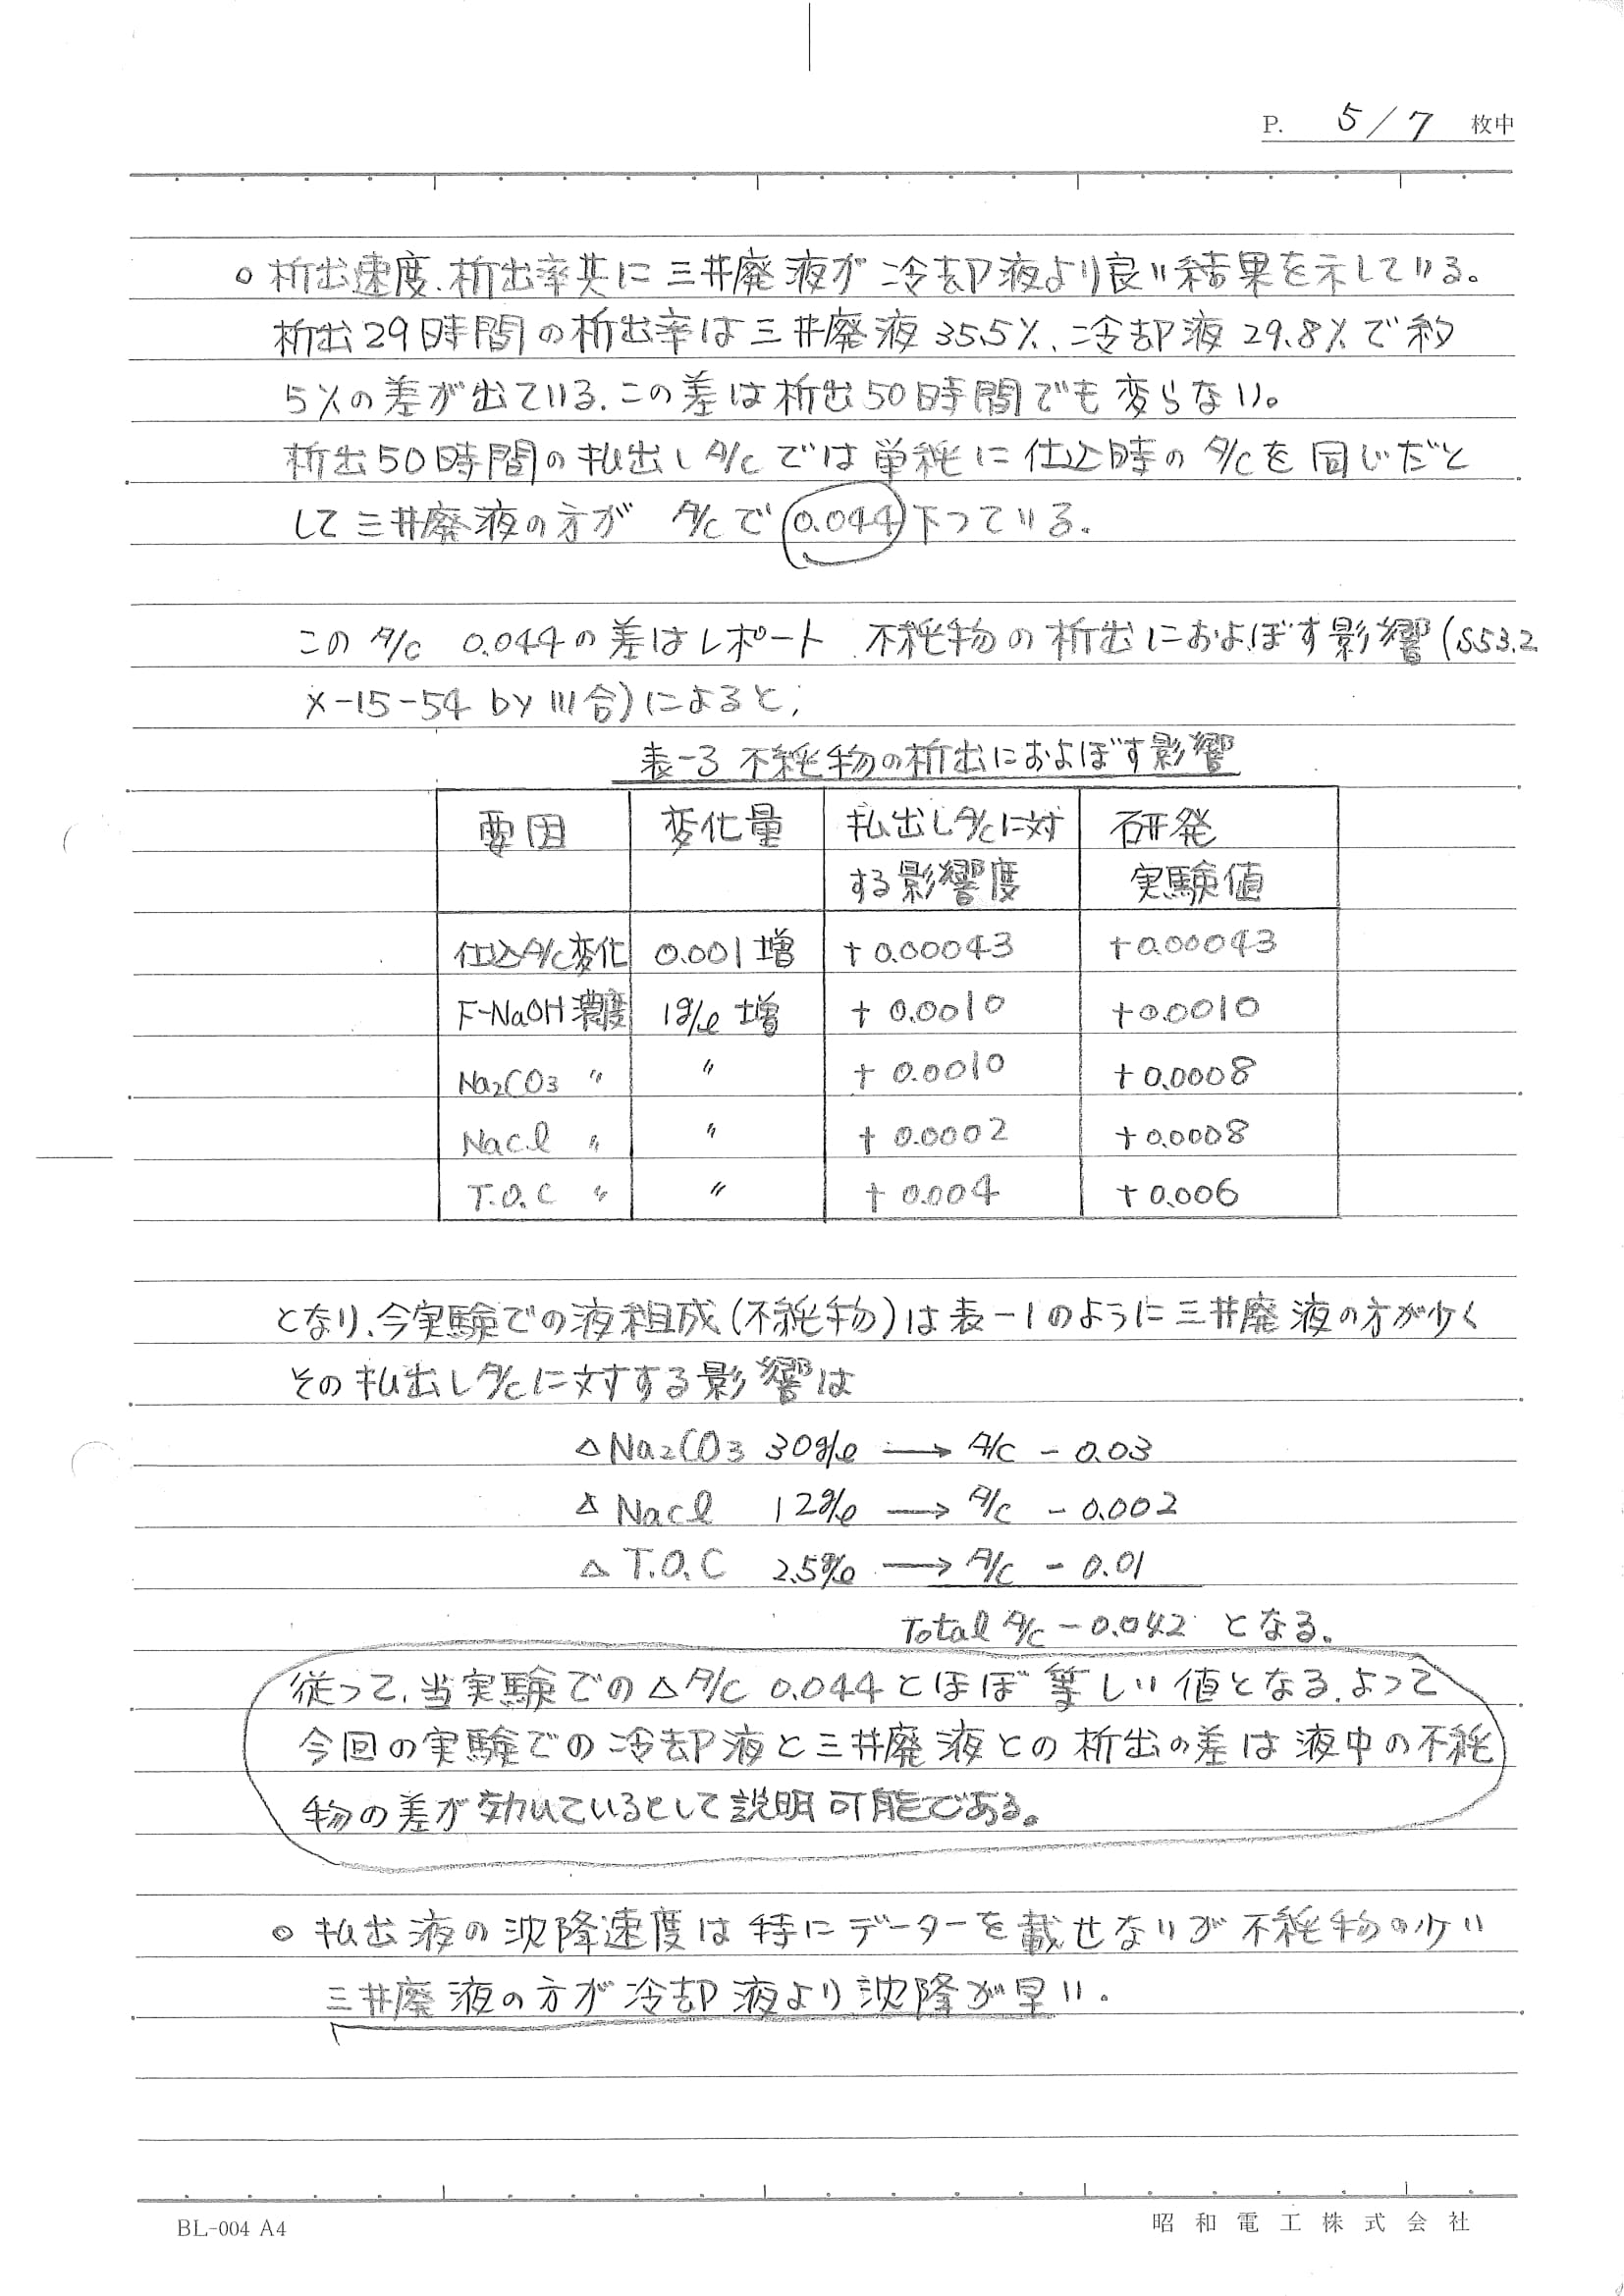 P. 5/7 枚中
○ 析出速度、析出率共に三井廃液が冷却液より良い結果を示している。
析出29時間の析出率は三井廃液35.5%、冷却液29.8%で約
5%の差が出ている。この差は析出50時間でも変らない。
析出50時間の払出しA/Cでは単純に仕込時のA/Cを同じだと
して三井廃液の方が A/Cで 0.044 下っている。
このA/C 0.044の差はレポート 不純物の析出におよぼす影響(S53.2
X-15-54 by 川合)によると、
表-3 不純物の析出におよぼす影響
要因 変化量 払出しA/Cに対 研発
する影響度 実験値
仕込A/C変化 0.001増 +0.00043 +0.00043
F-NaOH濃度 1g/l 増 +0.0010 +0.0010
Na2CO3 〃 〃 +0.0010 +0.0008
NaCl 〃 〃 +0.0002 +0.0008
T.O.C 〃 〃 +0.004 +0.006
となり、今実験での液組成(不純物)は表-1のように三井廃液の方が少く
その払出しA/Cに対する影響は
△Na2CO3 30g/l → A/C -0.03
△NaCl 12g/l → A/C -0.002
△T.O.C 2.5g/l → A/C -0.01
Total A/C -0.042 となる。
従って、当実験での△A/C 0.044とほぼ等しい値となる。よって
今回の実験での冷却液と三井廃液との析出の差は液中の不純
物の差が効いているとして説明可能である。
○ 払出液の沈降速度は特にデーターを載せないが不純物の少い
三井廃液の方が冷却液より沈降が早い。
BL-004 A4
昭和電工株式会社